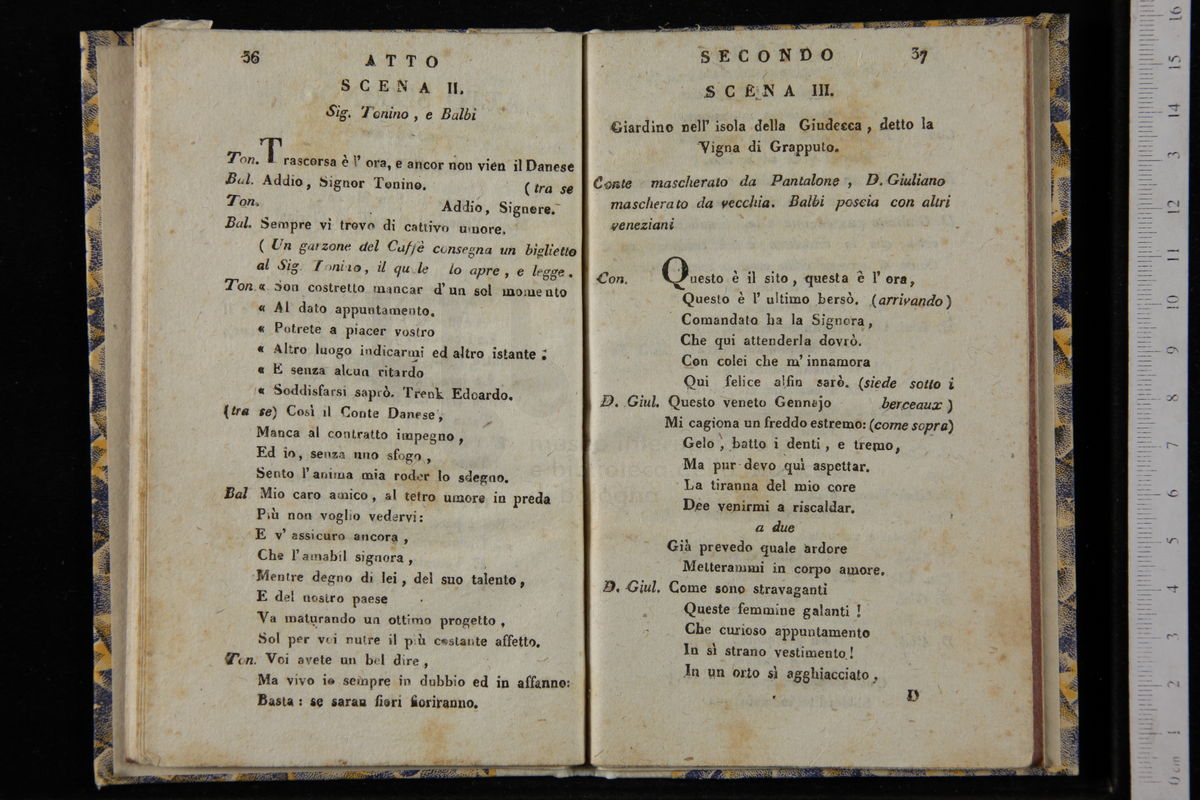 36
ATTO
SCENA II.
Sig. Tonino, e Balbi
Ton. Trascorsa è l' ora, e ancor non vien il Danese
Bal. Addio, Signor Tonino. (tra se
Ton. Addio, Signore.
Bal. Sempre vi trovo di cattivo umore.
( Un garzone del Caffè consegna un biglietto
al Sig. Tonino, il quale lo apre, e legge.
Ton. « Son costretto mancar d' un sol momento
« Al dato appuntamento.
« Potrete a piacer vostro
« Altro luogo indicarmi ed altro istante :
« E senza alcun ritardo
« Soddisfarsi saprò. Trenk Edoardo.
(tra se) Così il Conte Danese,
Manca al contratto impegno,
Ed io, senza uno sfogo,
Sento l' anima mia roder lo sdegno.
Bal Mio caro amico, al tetro umore in preda
Più non voglio vedervi:
E v' assicuro ancora,
Che l' amabil signora,
Mentre degno di lei, del suo talento,
E del nostro paese
Va maturando un ottimo progetto,
Sol per voi nutre il più costante affetto.
Ton. Voi avete un bel dire,
Ma vivo io sempre in dubbio ed in affanno:
Basta : se saran fiori fioriranno.
SECONDO
37
SCENA III.
Giardino nell' isola della Giudecca, detto la
Vigna di Grapputo.
Conte mascherato da Pantalone, D. Giuliano
mascherato da vecchia. Balbi poscia con altri
veneziani
Con. Questo è il sito, questa è l' ora,
Questo è l' ultimo bersò. (arrivando)
Comandato ha la Signora,
Che qui attenderla dovrò.
Con colei che m' innamora
Qui felice alfin sarò. (siede sotto i
D. Giul. Questo veneto Gennajo berceaux)
Mi cagiona un freddo estremo: (come sopra)
Gelo, batto i denti, e tremo,
Ma pur devo quì aspettar.
La tiranna del mio core
Dee venirmi a riscaldar.
a due
Già prevedo quale ardore
Metterammi in corpo amore.
D. Giul. Come sono stravaganti
Queste femmine galanti !
Che curioso appuntamento
In sì strano vestimento !
In un orto sì agghiacciato,
D
0 cm 1 2 3 4 5 6 7 8 9 10 11 12 13 14 15 16